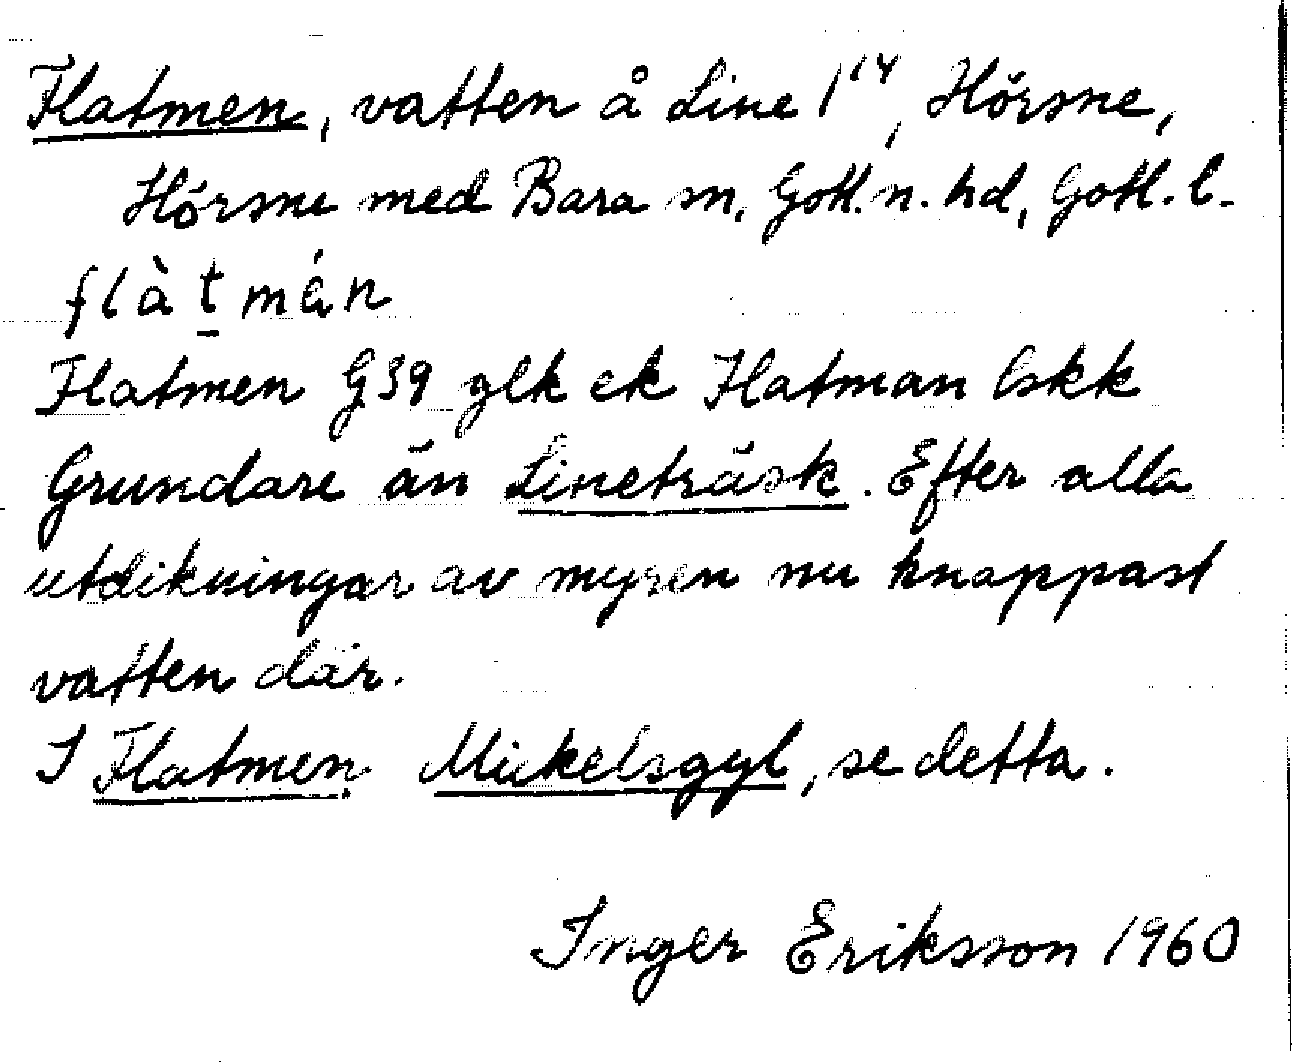 Flatmen, vatten å Line 1¹⁴, Hörsne,
Hörsne med Bara sn, Gotl. n. hd, Gotl. l.
flàtmén
Flatmen G39 glk ek Flatman lskk
Grundare än Lineträsk. Efter alla
utdikningar av myren nu knappast
vatten där.
I Flatmen Mickelsgyl, se detta.
Inger Eriksson 1960